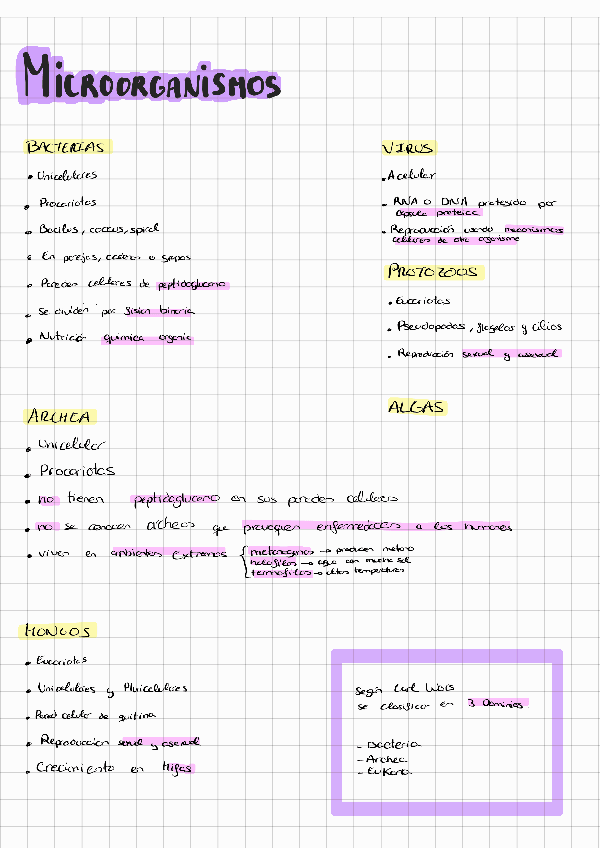 MICROORGANISMOS
BACTERIAS
• Unicelulares
• Procariotas
• Bacilus, coccus, spiral
• En parejas, cadenas o grupos
• Paredes celulares de peptidoglucano
• Se dividen por fision binaria
• Nutrición quimica organica
VIRUS
• Acelular
• RNA o DNA protegido por
capsula proteica
• Reproduccion usando mecanismos
celulares de otro organismo
PROTOZOOS
• Eucariotas
• Pseudopodos, flagelos y cilios
• Reproducción sexual y asexual
ARCHEA
• Unicelular
• Procariotas
• no tienen peptidoglucano en sus paredes celulares
• no se conocen archeas que provoquen enfermedades a los humanos
• viven en ambientes extremos
metanogenos → producen metano
halofilos → agua con mucha sal
termofilos → altas temperaturas
ALGAS
HONGOS
• Eucariotas
• Unicelulares y Pluricelulares
• Pared celular de quitina
• Reproduccion sexual y asexual
• Crecimiento en Hifas
Según Carl
se clasifican en 3 Dominios
- Bacteria
- Archea
- Eukarya